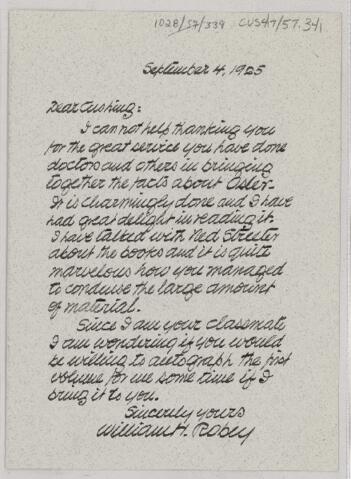 1028/57/339 CUS417/57.341
September 4, 1925
Dear Cushing:
I can not help thanking you
for the great service you have done
doctors and others in bringing
together the facts about Osler.
It is charmingly done and I have
had great delight in reading it.
I have talked with Ned Streeter
about the books and it is quite
marvelous how you managed
to condense the large amount
of material.
Since I am your classmate
I am wondering if you would
be willing to autograph the first
volume for me some time if I
bring it to you.
Sincerely yours
William H. Robey